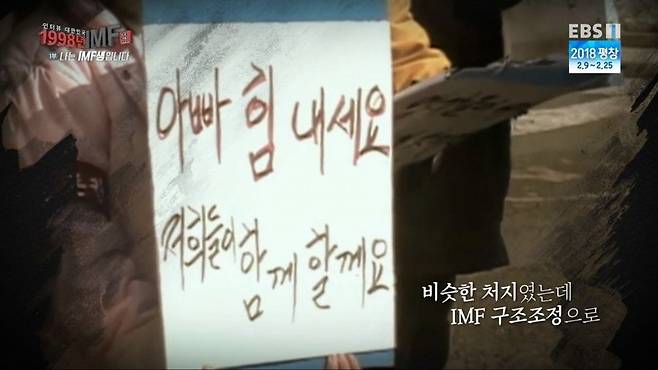 인터뷰 대한민국
1998년 IMF
1부 나는 IMF생입니다
EBS 1
2018 평창
2.9~2.25
아빠 힘 내세요
저희들이 함께 할께요
비슷한 처지였는데
IMF 구조조정으로